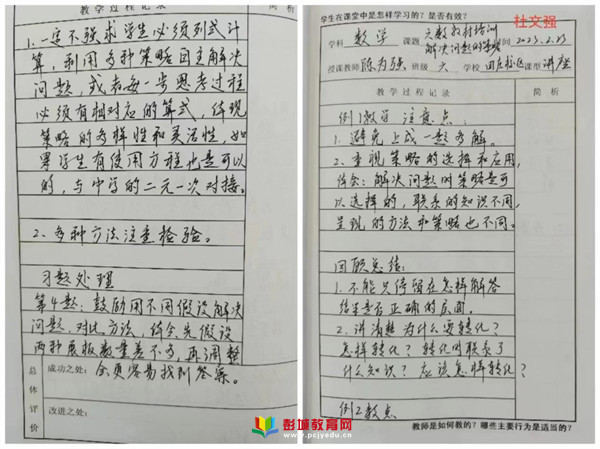 教学过程记录
简析
1.一定不强求学生必须列式计
算，利用多种策略自主解决
问题，或者每一步思考过程
必须有相对应的算式，体现
策略的多样性和灵活性，如
果学生有使用方程也是可以
的，与中学的二元一次对接。
2、多种方法注重检验。
习题处理
第4题：鼓励用不同假设解决
问题，对比方法，体会先假设
两种展板数量差不多，再调整
总体评价
成功之处：会更容易找到答案。
改进之处：
学生在课堂中是怎样学习的？是否有效？
杜文强
学科 数学 课题 六数教材培训
解决问题的策略 时间 2023.2.23
授课教师 陈为强 班级 六 学校 课型 讲座
教学过程记录
简析
例1教学 注意点：
1.避免上成一题多解。
2.重视策略的选择和应用，
体会：解决问题时策略是可
以选择的，联系的知识不同，
呈现的方法和策略也不同。
回顾总结：
1.不能只停留在怎样解答
结果是否正确的层面。
2.讲清楚为什么要转化？
怎样转化？转化时联系了
什么知识？应该怎样转化？
例2教点
教师是如何教的？哪些主要行为是适当的？
彭城教育网
www.pcjyedu.cn